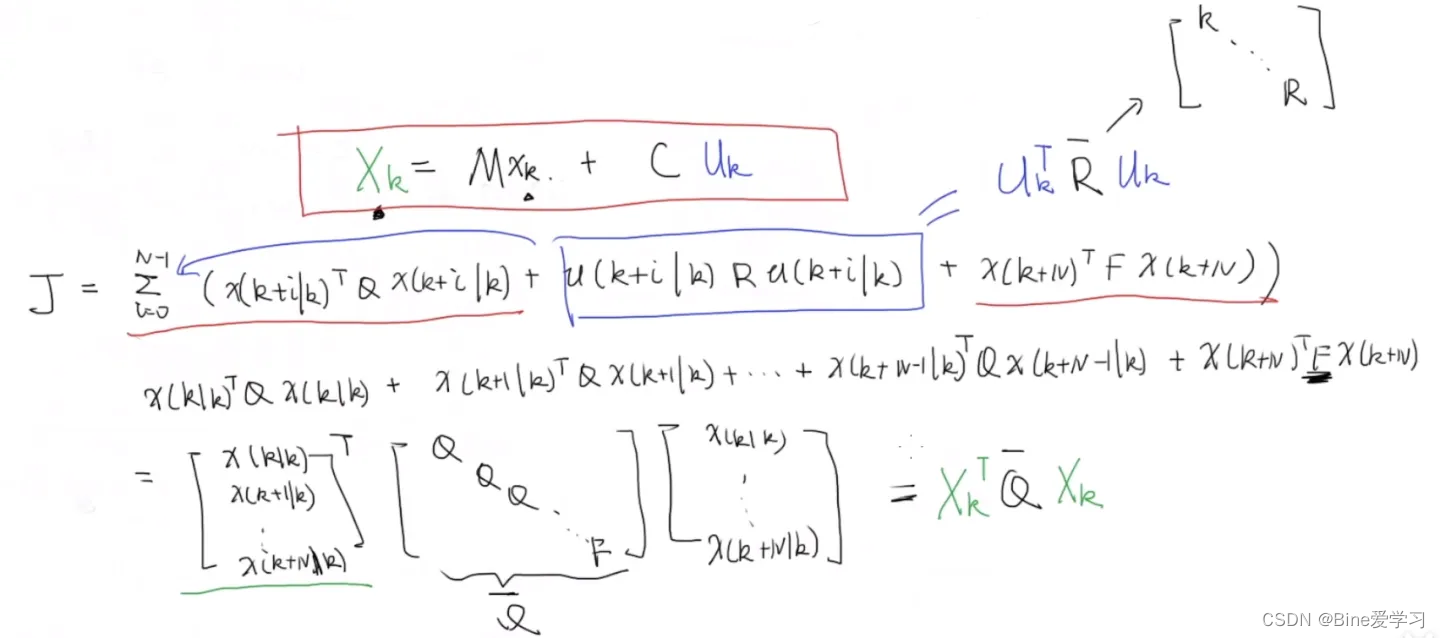 [k ⋱ R]
X_k = M x_k. + C U_k
U_k^T R̄ U_k
J = Σ_{i=0}^{N-1} (x(k+i|k)^T Q x(k+i|k) + u(k+i|k) R u(k+i|k) + x(k+N)^T F x(k+N))
x(k|k)^T Q x(k|k) + x(k+1|k)^T Q x(k+1|k) + ⋯ + x(k+N-1|k)^T Q x(k+N-1|k) + x(k+N)^T F x(k+N)
= [x(k|k) x(k+1|k) ⋮ x(k+N|k)]^T [Q Q Q ⋱ F] [x(k|k) ⋮ x(k+N|k)] = X_k^T Q̄ X_k
Q̄
CSDN @Bine爱学习